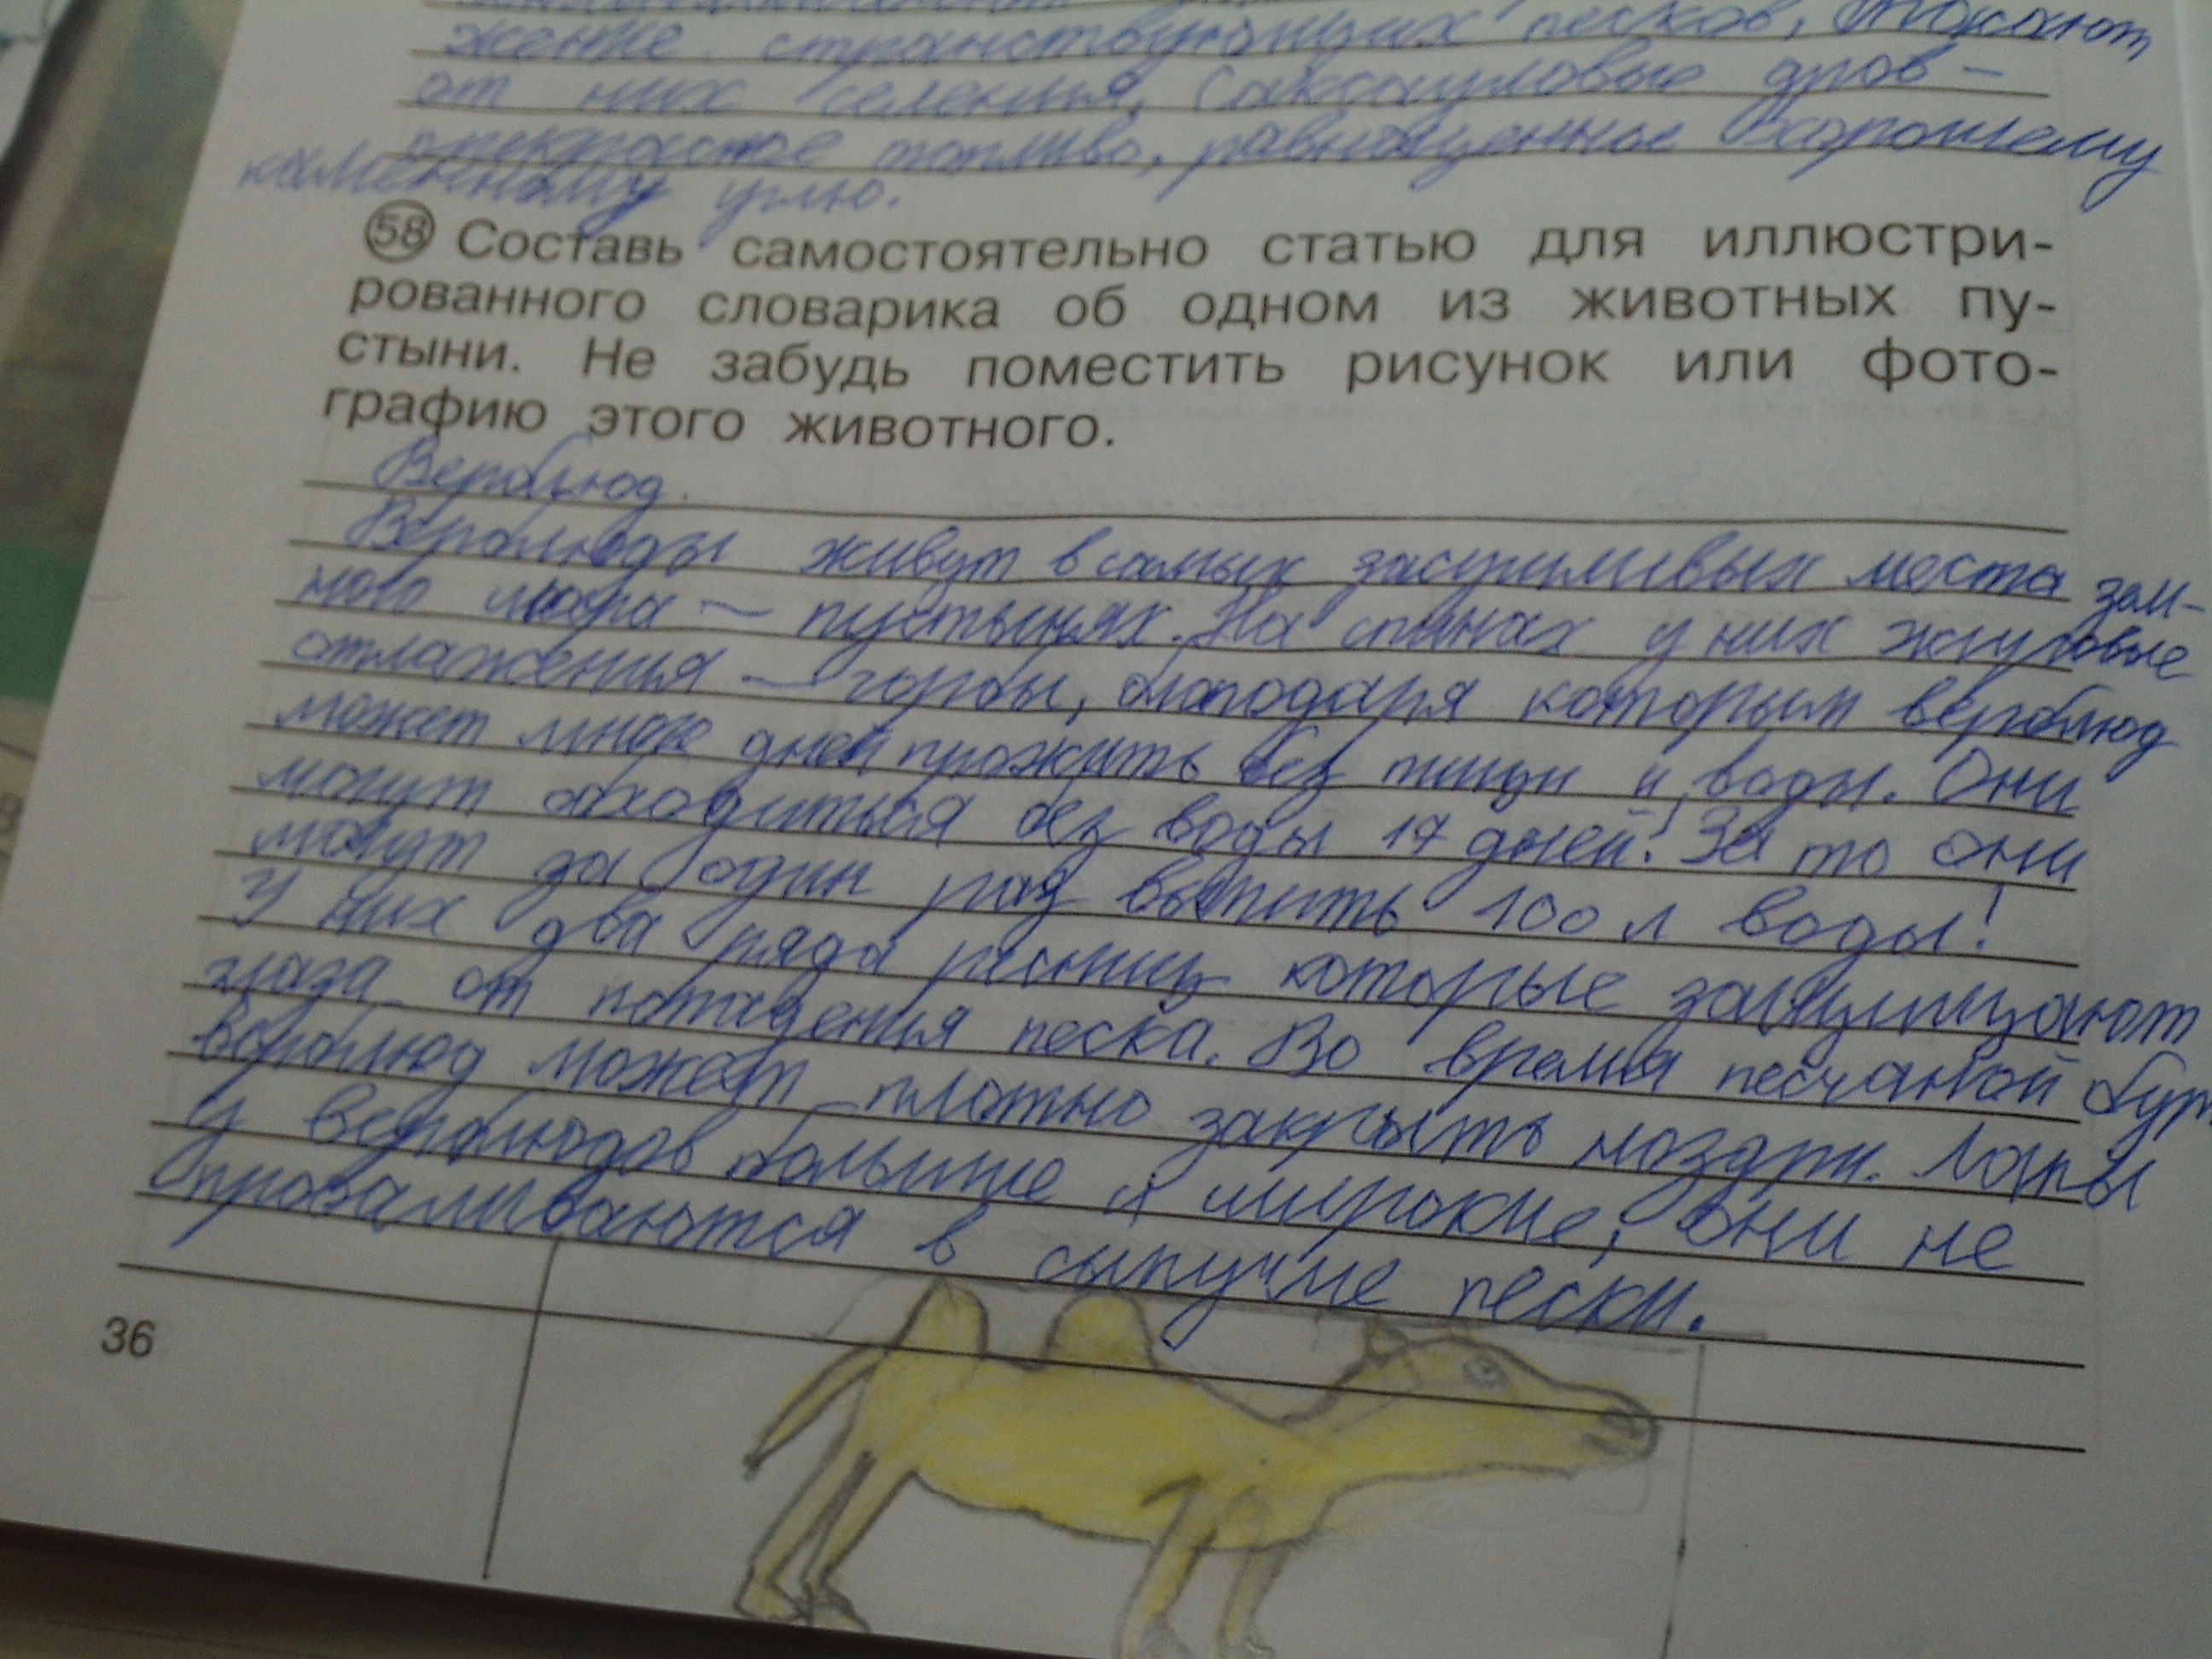 жение странствующих песков,
от них селения, Саксауловые дров-
прекрасное топливо, равноценное хорошему
каменному углю.
58 Составь самостоятельно статью для иллюстри-
рованного словарика об одном из животных пу-
стыни. Не забудь поместить рисунок или фото-
графию этого животного.
Верблюд.
Верблюды живут в самых засушливых места зем-
ного шара - пустынях. На спинах у них жировые
отлажения - горбы, благодаря которым верблюд
может много дней прожить без пищи и воды. Они
могут обходиться без воды 17 дней! За то они
могут за один раз выпить 100 л воды!
У них два ряда ресниц которые защищают
глаза от попадения песка. Во время песчаной
верблюд может плотно закрыть ноздри. Лапы
у верблюдов больше и широкие, они не
проваливаются в сыпучие пески.
36